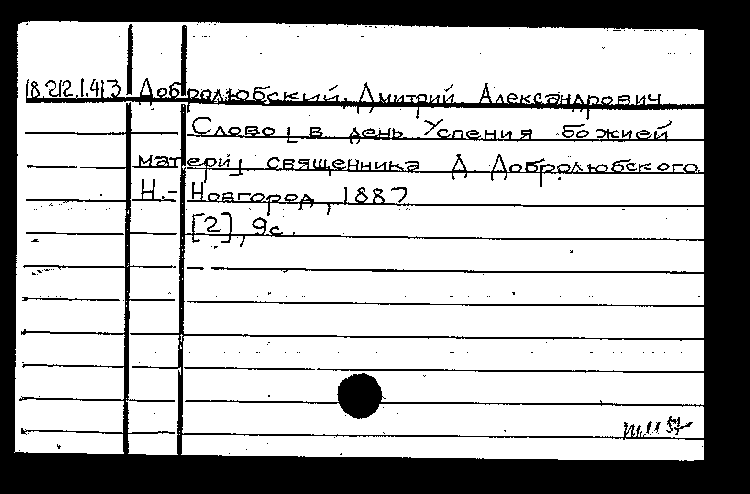 18.212.1.413 Добролюбский, Дмитрий Александрович
Слово [в день Успения божией
матери] священника Д. Добролюбского
Н.-Новгород, 1887
[2], 9с.